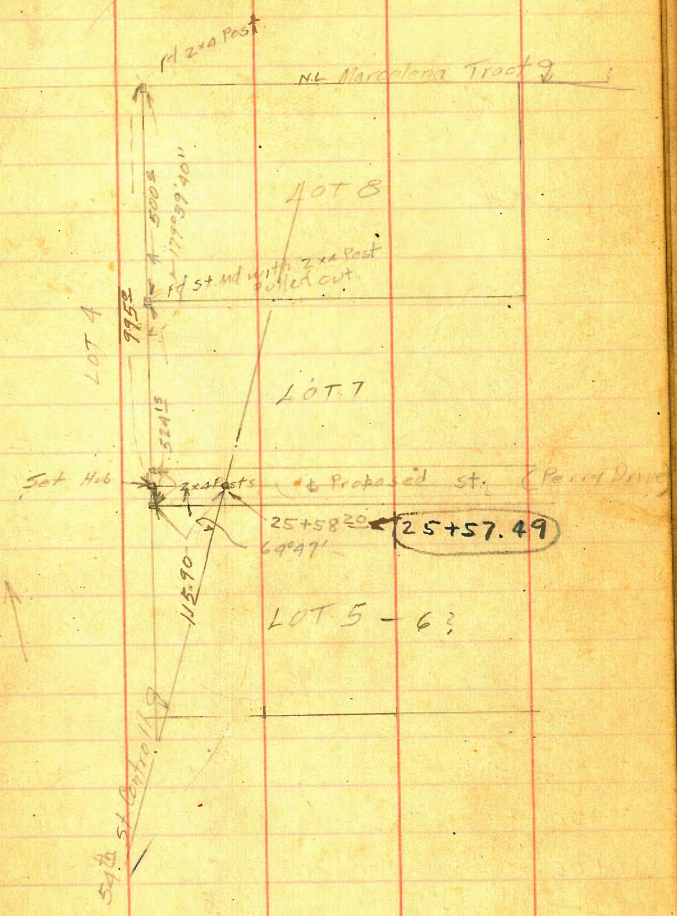 Fd 2x4 Post
N.L. Marcelona Tract
LOT 8
500 8
179°39'40"
Fd St. Md with 2x4 Post
pulled out
LOT 4
995 2
LOT 7
524 15
Set Hub
2x4 Posts
Proposed St. (Perry Drive)
25+58 20
25+57.49
64°47'
115.90
LOT 5 - 6?
54th St Control